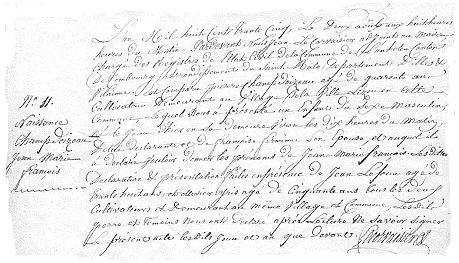 L'an Mil huit Cent trente Cinq, le Deux août aux huit heures
heures du Matin Pardevant Nous Jean Le Corvaisier adjoint au Maire
Chargé des Registres de l'Etat Civil de la Commune de Canton
de Combourg arrondissement de Saint Malo Departement d'Ille &
Vilaine est Comparu pierre Champdoizeau agé de quarante ans
Cultivateur Demeurant au Village de la Ville en Cette
Commune, lequel Nous a présenté un Enfant du Sexe Masculin,
né le Jour en Sa Demeure Viron les Dix heures du Matin,
De lui Declarant, et de françoise Son Epouse, et auquel il
a Déclaré Vouloir Donner les prénoms de Jean Marie françois Les dites
Déclaration & présentation faites en présence de Jean agé de
trente huit ans, et olivier agé de Cinquante ans tous les Deux
Cultivateurs et Demeurant au même Village et Commune, Les
père et témoins Nous ont Déclaré après lecture Ne Savoir Signer
Le présent acte lesdits Jour et an que devant.
N.º 11.
Naissance
Champdoizeau
Jean Marie
françois